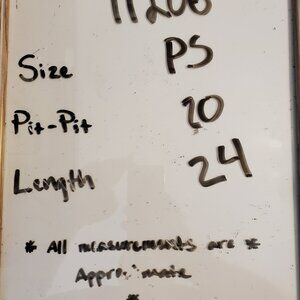 11208
Size PS
Pit-Pit 20
Length 24
* All measurements are *
Approximate
*